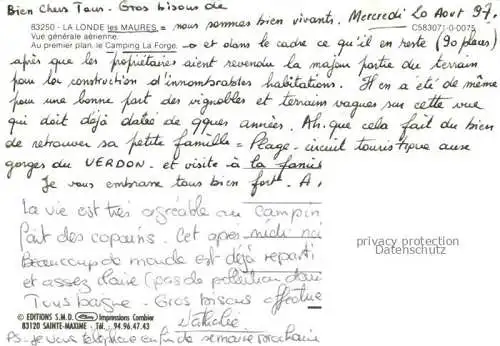 Bien Chers Tous. Gros bisous de
83250 - LA LONDE les MAURES = nous sommes bien vivants. Mercredi 20 Aout 97.
Vue générale aérienne. C583071-0-0075
Au premier plan, le Camping La Forge. → et dans le cadre ce qu'il en reste (90 places)
après que les propriétaires aient revendu la majeure partie du terrain
pour la construction d'innombrables habitations. Il en a été de même
pour une bonne part des vignobles et terrains vagues sur cette vue
qui doit déjà dater de qques années. Ah. que cela fait du bien
de retrouver sa petite famille = Plage - circuit touristique aux
gorges du VERDON. et visite à la
Je vous embrasse tous bien fort. A
La vie est très agréable au campin
fait des copains. Cet apres-midi
Beaucoup de monde est déjà reparti
et assez claire (pas de pollution
Tous baigne. Gros bisous
Nathalie
© EDITIONS S.M.D. Impressions Combier
83120 SAINTE-MAXIME - Tél. 94.96.47.43
PS: Je vous téléphone en fin de semaine prochaine
privacy protection
Datenschutz